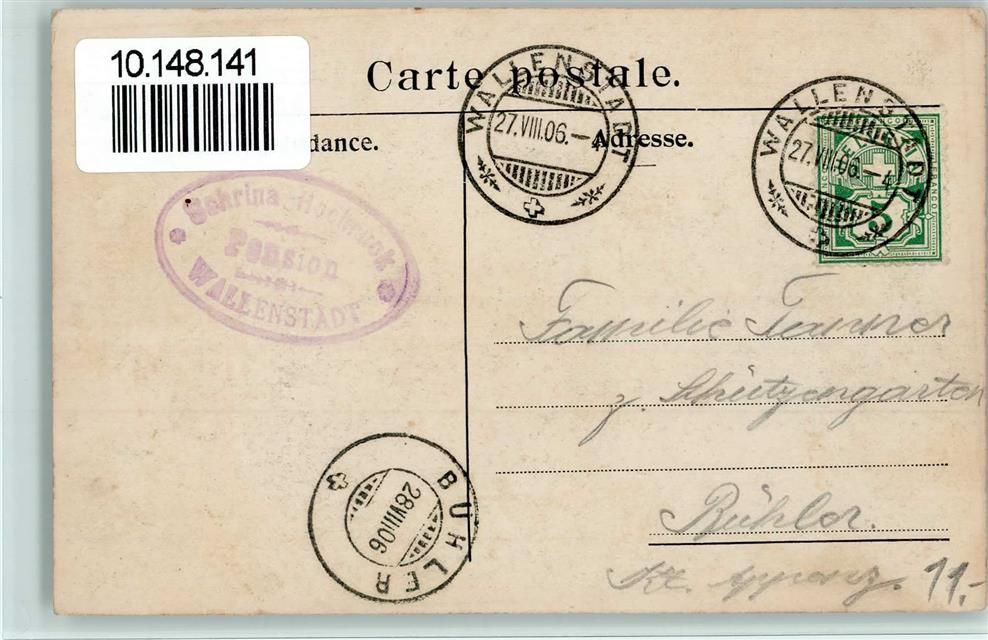 10.148.141
Carte postale.
dance.
Adresse.
WALLENSTADT
27.VIII.06.-4
WALLENSTADT
27.VIII.06.-4
5
Sehrina Hochruck
Pension
WALLENSTADT
Familie Tanner
z. Schützengarten
Bühler.
Kt. Appenz.
11.-
BÜHLER
28.VIII.06